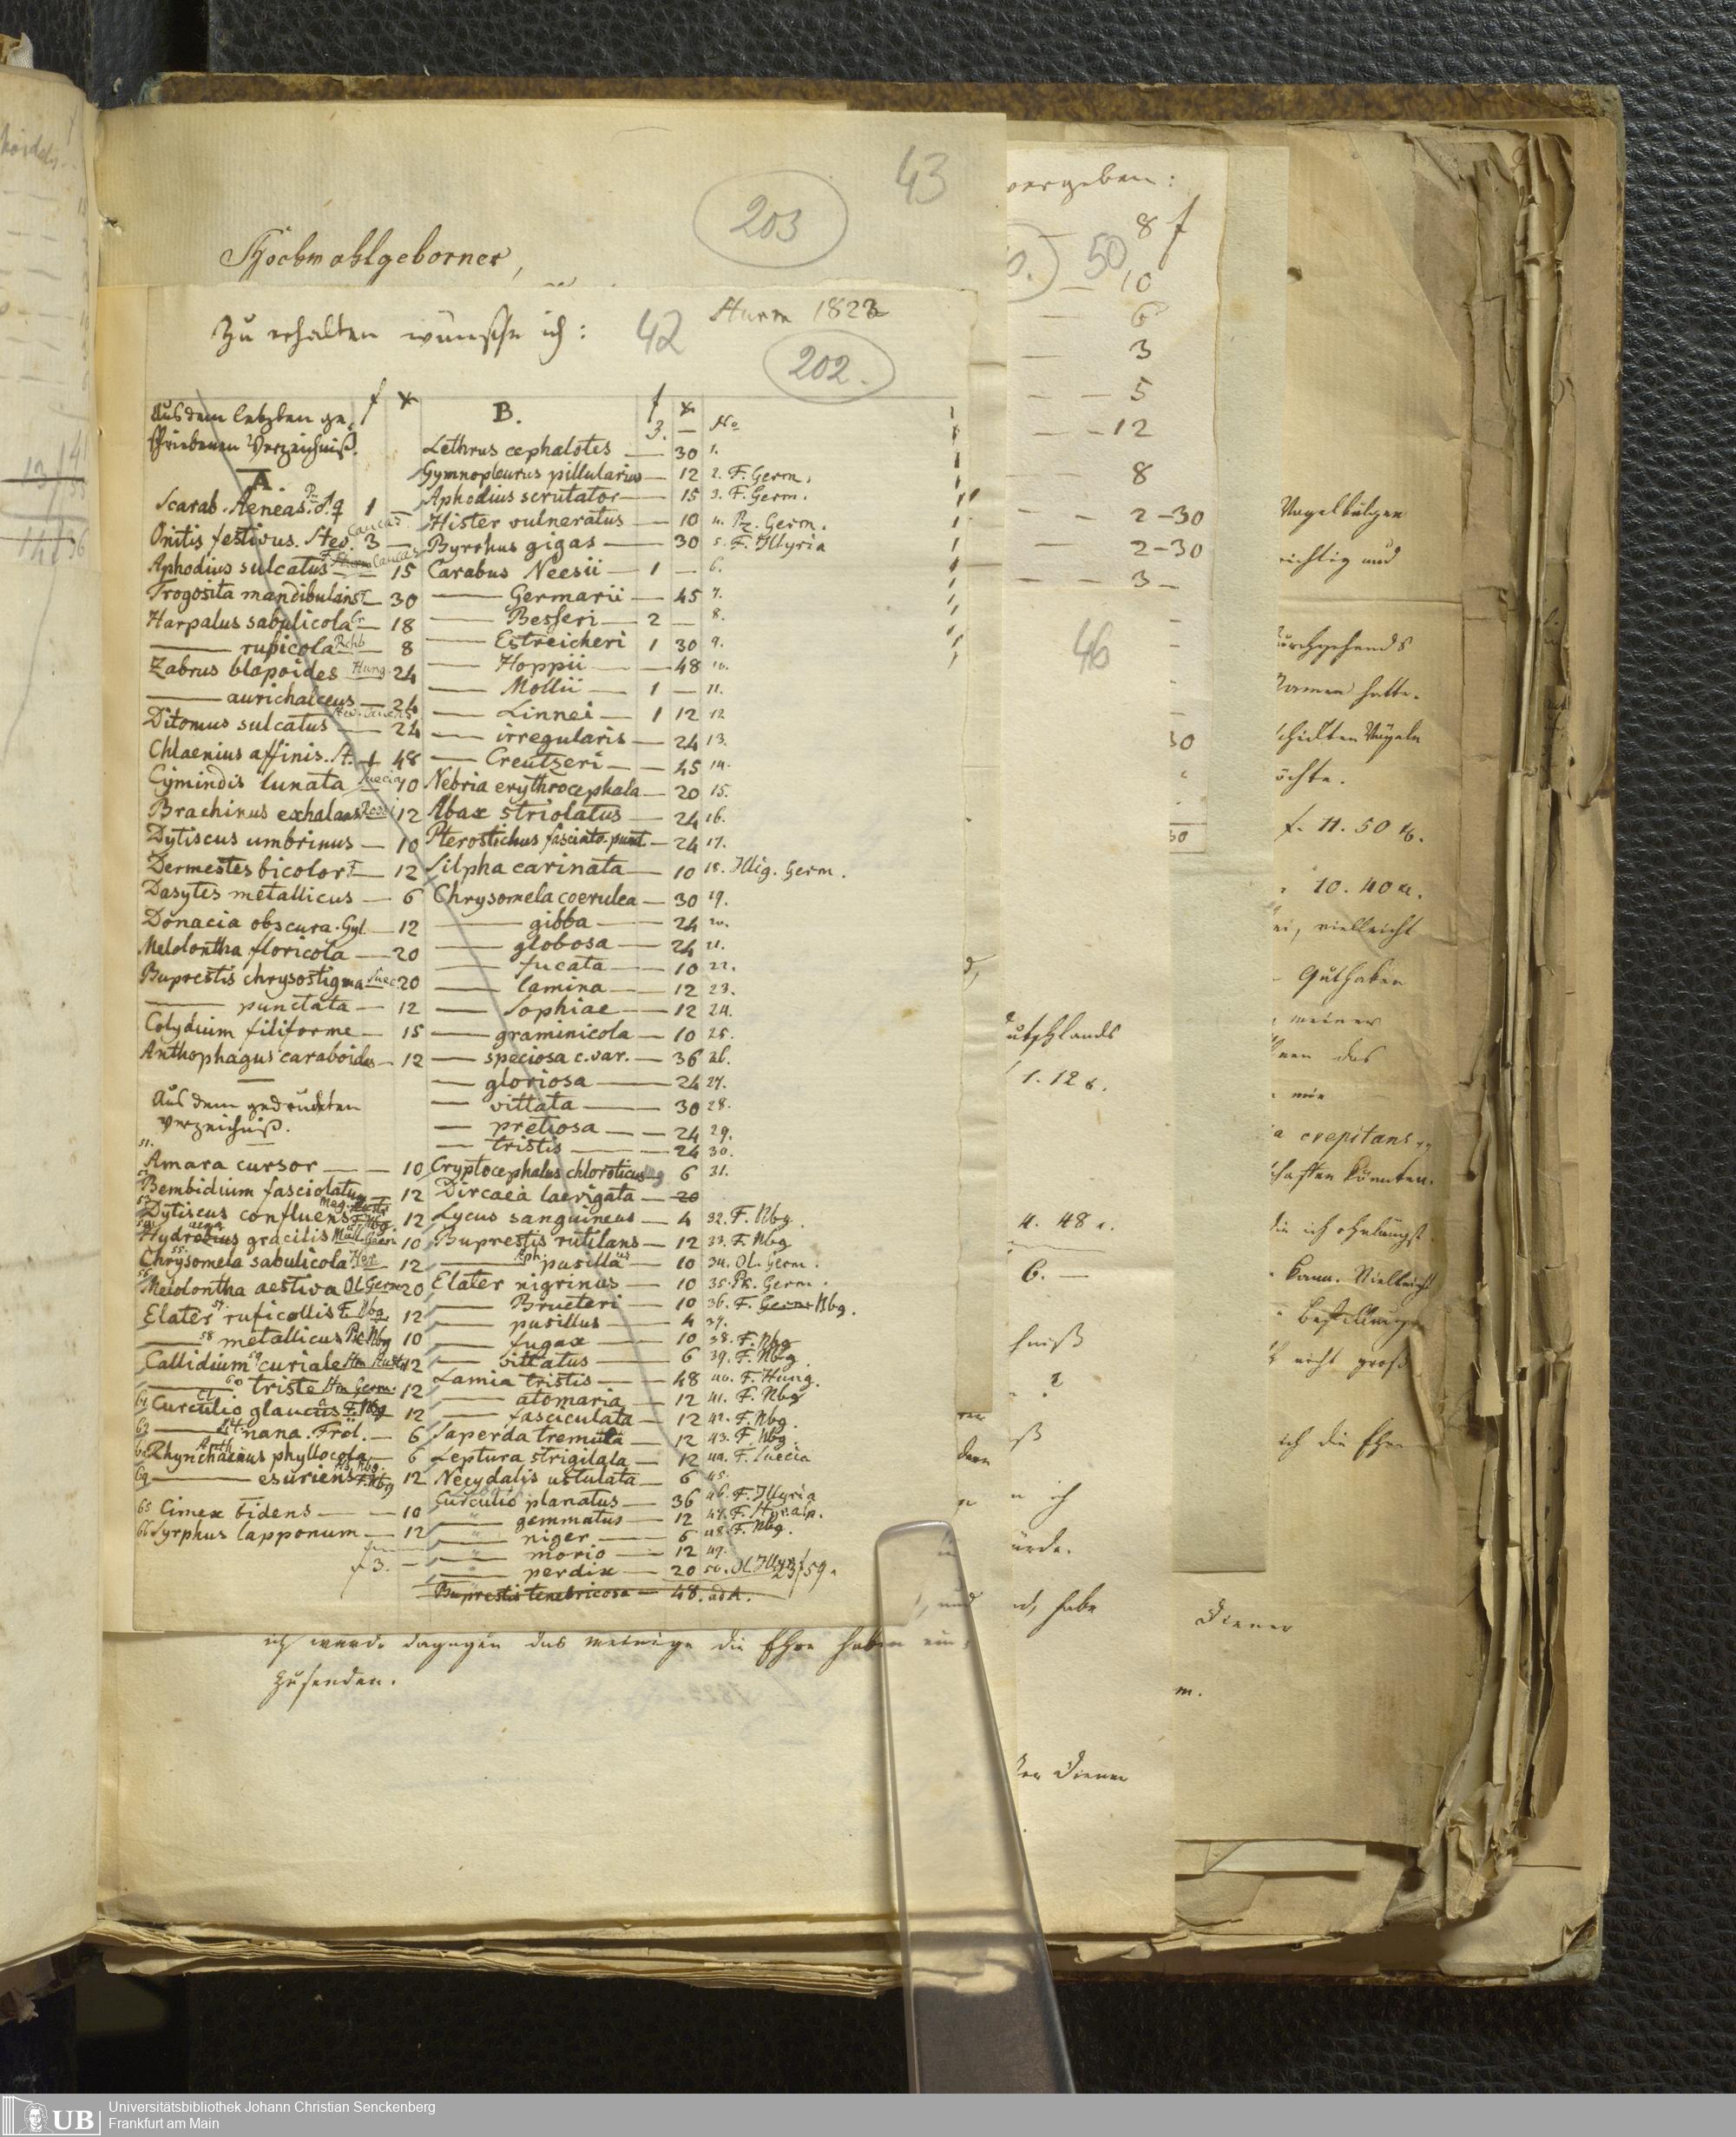 43
203
Hochwohlgeborner,
Zu erhalten wünsche ich:
42
Sturm 1823
202.
Aus dem letzten ge-
schriebenen Verzeichniß.
A.
Scarab. Aeneas. Pz. ♂♀ 1 —
Onitis festivus. Stev. Caucas. 3 —
Aphodius sulcatus F. Caucas — 15
Trogosita mandibularis F. — 30
Harpalus sabulicola Cr — 18
—— rupicola — 8
Zabrus blapoides Hung. 24
—— aurichalceus — 24
Ditomus sulcatus — 24
Chlaenius affinis. St. 1 48
Cymindis lunata Suecia 40
Brachinus exhalans Rossi 12
Dytiscus umbrinus — 10
Dermestes bicolor F. — 12
Dasytes metallicus — 6
Donacia obscura. Gyl. — 12
Melolontha floricola — 20
Buprestis chrysostigma Suec 20
—— punctata — 12
Colydium filiforme — 15
Anthophagus caraboides — 12
Aus dem gedruckten
Verzeichniß.
51.
Amara cursor — — 10
Bembidium fasciolatum — 12
53 Dytiscus confluens F. Nbg. 12
Hydrobius gracilis Müll. Germ 10
55. Chrysomela sabulicola Her 12
56 Melolontha aestiva Ol. Germ 20
57. Elater ruficollis F. Nbg. 12
58 —— metallicus Pk. Nbg 10
59 Callidium curiale Hm Aust 12
60 —— triste Hm Germ. 12
61 Curculio glaucus F. Nbg 12
62 —— nana. Fröl. — 6
63 Rhynchaenus phyllocola — 6
64 —— esuriens F. Nbg 12
65 Cimex bidens — — 10
66 Syrphus lapponum — 12
f 3. —
B.
f x
3. — No
Lethrus cephalotes — 30 1.
Gymnopleurus pillularius — 12 2. F. Germ.
Aphodius scrutator — 15 3. F. Germ.
Hister vulneratus — 10 4. Pz. Germ.
Byrrhus gigas — 30 5. F. Illyria
Carabus Neesii — 1 — 6.
—— Germarii — 45 7.
—— Besseri — 2 — 8.
—— Estreicheri 1 30 9.
—— Hoppii — 48 10.
—— Mollii — 1 — 11.
—— Linnei — 1 12 12
—— irregularis — 24 13.
—— Creutzeri — 45 14.
Nebria erythrocephala — 20 15.
Abax striolatus — 24 16.
Pterostichus fasciato-punt. — 24 17.
Silpha carinata — 10 18. Illig. Germ.
Chrysomela coerulea — 30 19.
—— gibba — 24 20.
—— globosa — 24 21.
—— fucata — 10 22.
—— lamina — 12 23.
—— Sophiae — 12 24.
—— graminicola — 10 25.
—— speciosa c. var. — 36 26.
—— gloriosa — 24 27.
—— vittata — 30 28.
—— pretiosa — 24 29.
—— tristis — 24 30.
Cryptocephalus chloroticus 6 31.
Dircaea laevigata — 20
Lycus sanguineus — 4 32. F. Nbg.
Buprestis rutilans — 12 33. F. Nbg
—— pusilla — 10 34. Ol. Germ.
Elater nigrinus — 10 35. Pk. Germ.
—— Bructeri — 10 36. F. Germ Nbg.
—— pusillus — 4 37.
—— fugax — 10 38. F. Nbg
—— vittatus — 6 39. F. Nbg.
Lamia tristis — 48 40. F. Hung.
—— atomaria — 12 41. F. Nbg
—— fasciculata — 12 42. F. Nbg.
Saperda tremula — 12 43. F. Nbg.
Leptura strigilata — 12 44. F. Suecia
Necydalis ustulata — 6 45.
Curculio planatus — 36 46. F. Illyria
" gemmatus — 12 47. F. Hyr. alp.
" niger — 6 48. F. Nbg.
" morio — 12 49.
" perdix — 20 50. Ol Illyr 23 f 59.
Buprestis tenebricosa — 48. ad A.
ich werde dagegen das meinige die Ehre haben ein-
zusenden.
vergeben:
8 f
50
10
6
3
5
12
8
2-30
2-30
3-
46
30
30
utschlands
1. 12 x.
4. 48 x.
6. —
hniß
?
ich
ürde.
habe
Diener
Vogelbälgen
richtig und
durchgehends
Namen hatte.
schickten Vögeln
öchte.
f. 11. 50 x.
10. 40 x.
ei, vielleicht
Guthaben
meiner
das
mir
a crepitans
haften könnten.
die ich ohnlängst
kann. Vielleicht
Bestellung
nicht groß
ich die Ehre
Diener
UB
Universitätsbibliothek Johann Christian Senckenberg
Frankfurt am Main